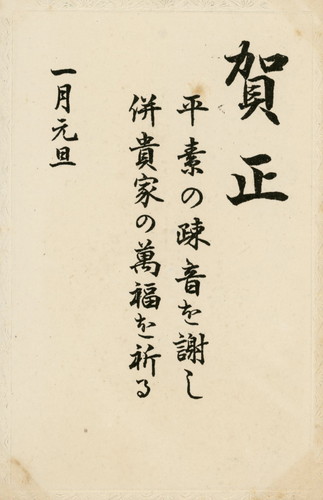 賀正
平素の疎音を謝し
併貴家の萬福を祈る
一月元旦